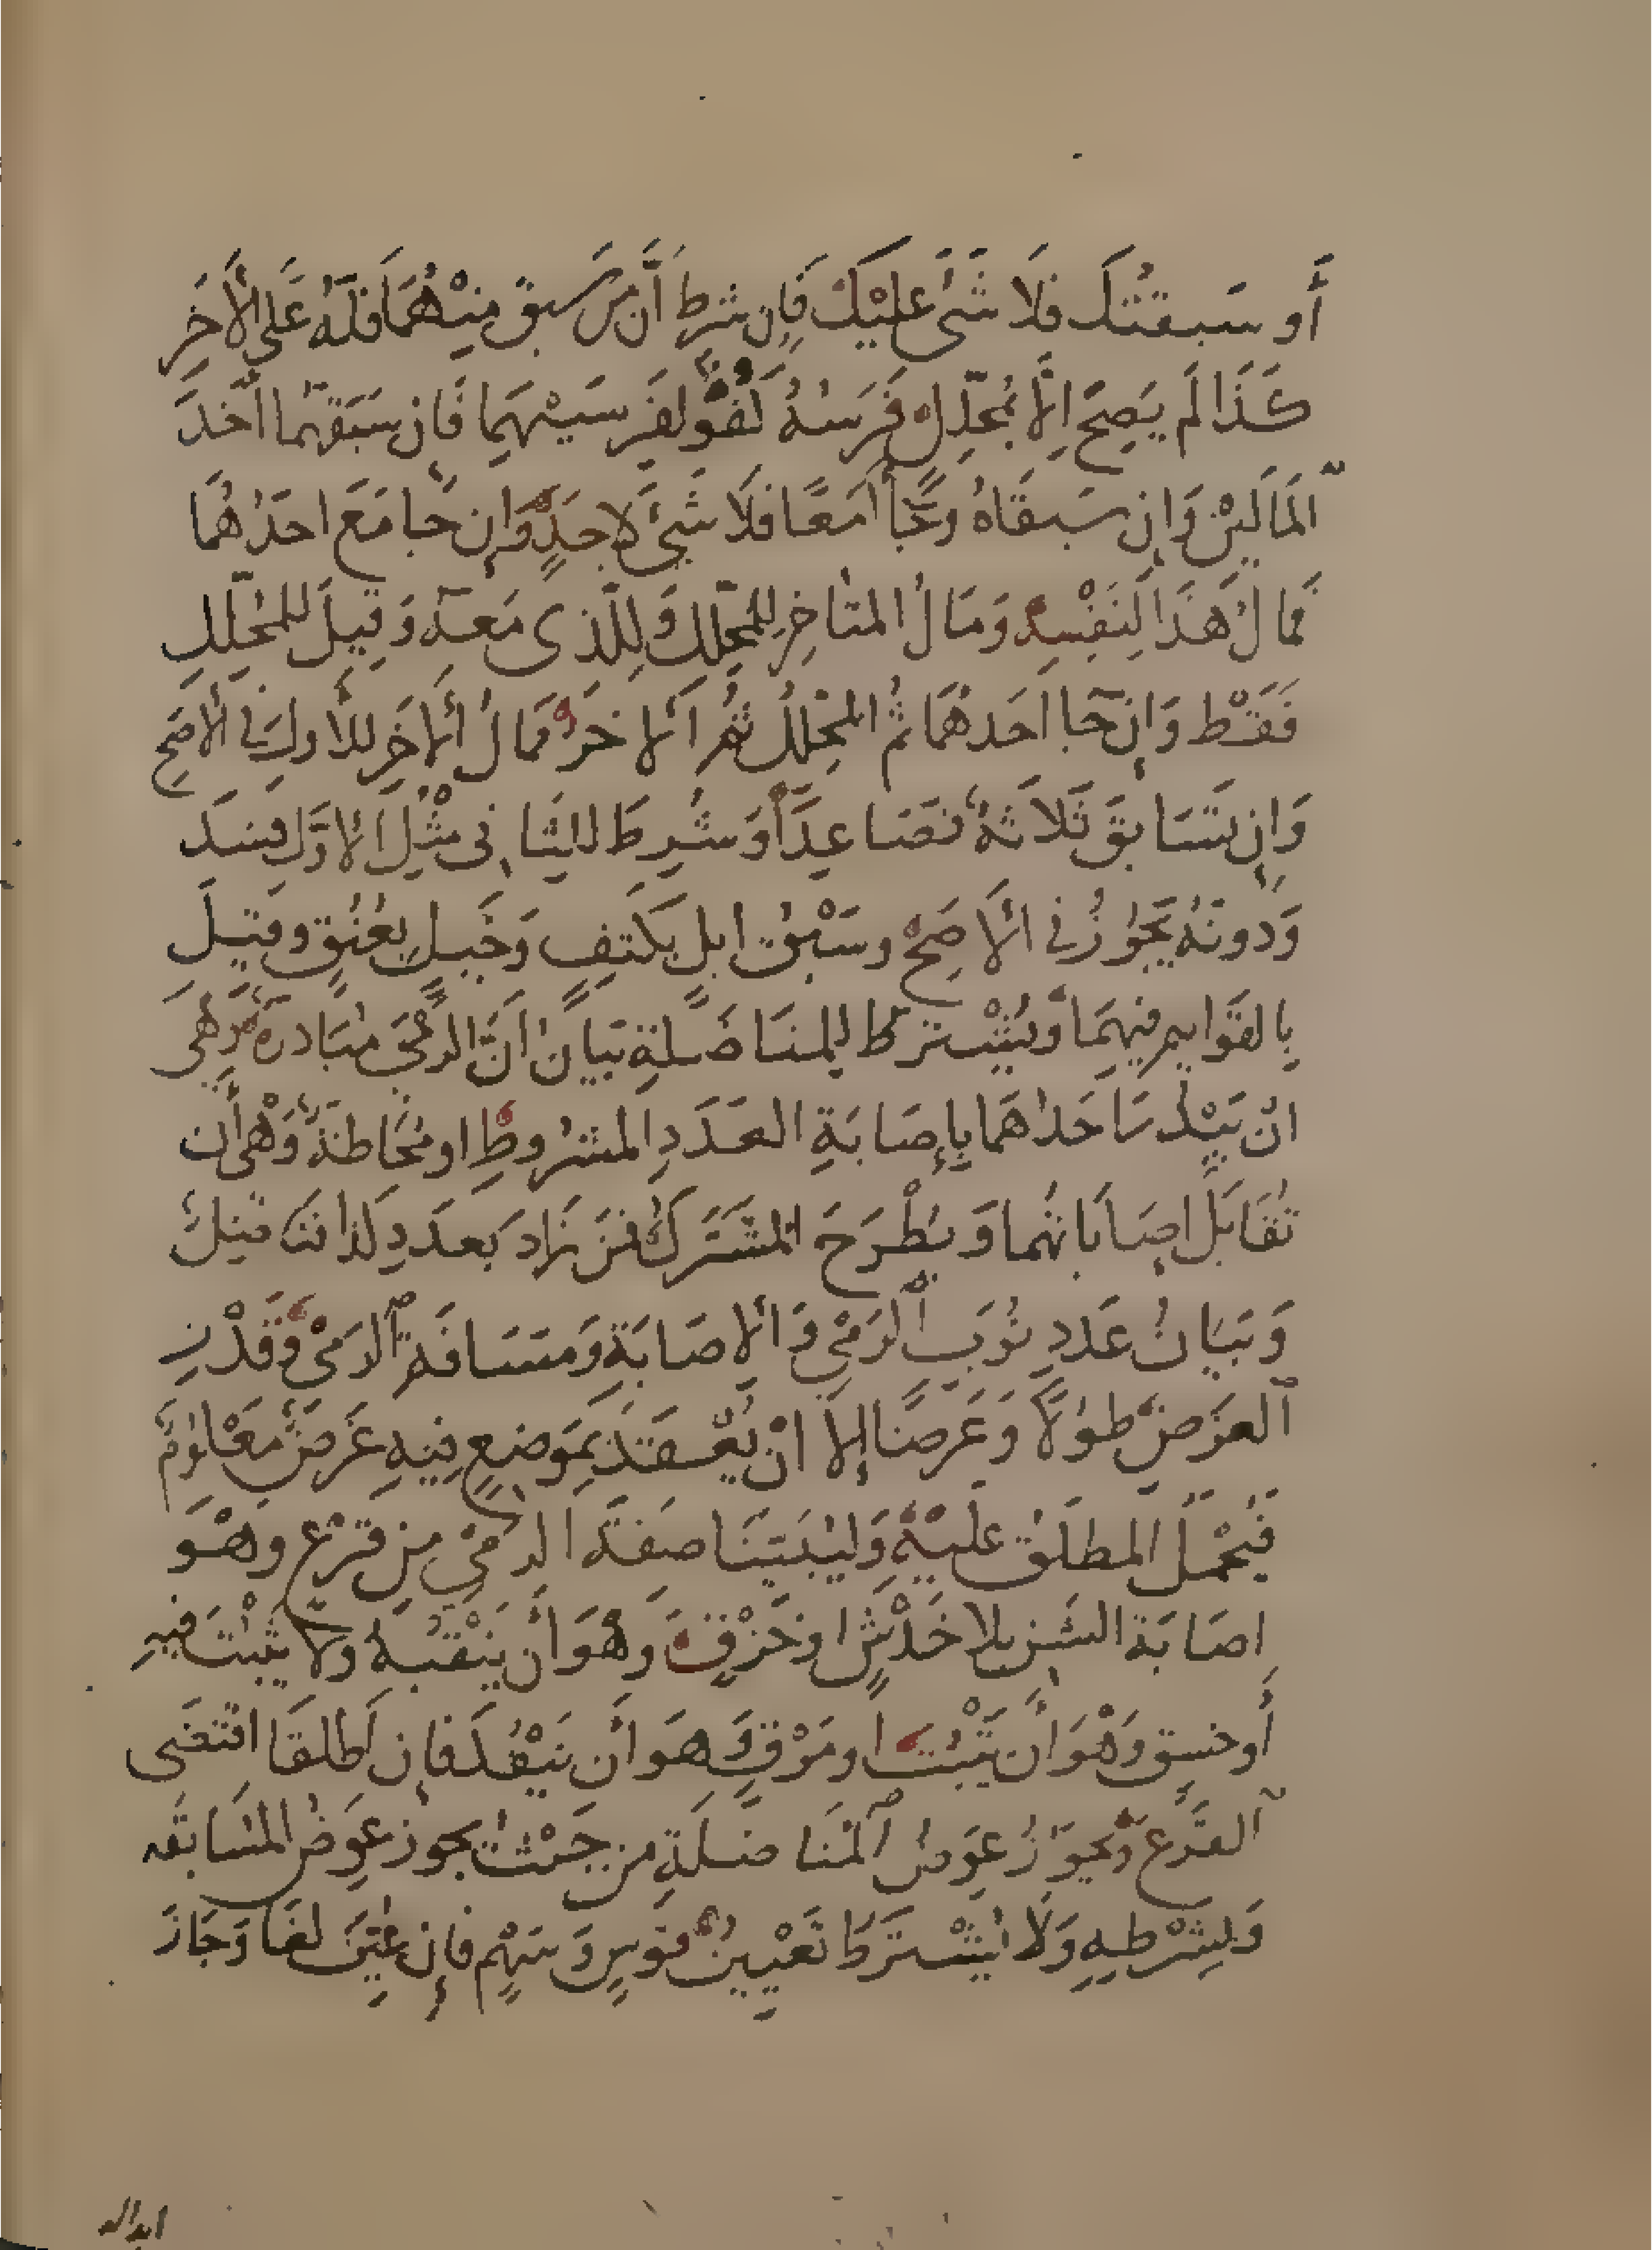 أو سبقتك فلا شئ عليك فإن شرط أن من سبق منهما فله على الأخر
كذا لم يصح إلا بمحلل فرسه كفؤ لفرسيهما فإن سبقهما أخذ
المالين وإن سبقاه وجاأا معا فلا شئ لاحد وإن جا مع احدهما
فمال هذا لنفسه ومال المتاخر للمحلل وللذى معه وقيل للمحلل
فقط وإن جا احدهما ثم المحلل ثم الاخر فمال الاخر للأول فى الأصح
وإن تسابق ثلاثة فصاعدا وشرط للثانى مثل الاول فسد
ودونه يجوز فى الأصح وسبق ابل بكتف وخيل بعنق وقيل
بالقوايم فيهما ويشترط للمناضلة بيان أن الرمى مبادرة وهى
ان يبدر احدهما بإصابة العدد المشروط او محاطة وهى أن
تقابل اصاباتهما ويطرح المشترك فمن زاد بعدد كذا فنـاضل
وبيان عدد نوب الرمى والاصابة ومسافة الرمى وقدر
الغرض طولا وعرضا إلا ان يعقد بموضع فيه غرض معلوم
فيحمل المطلق عليه وليبينا صفة الرمى من قرع وهو
اصابة الشن بلا خدش او خزق وهو أن ينقبه ولا يثبت فيه
أو خسق وهو أن يثبت او مرق وهو أن ينفذ فإن أطلقا اقتضى
القرع ويجوز عوض المناضلة من حيث يجوز عوض المسابقه
وبشرطه ولا يشترط تعيين قوس وسهم فإن عين لغا وجاز
ابداله